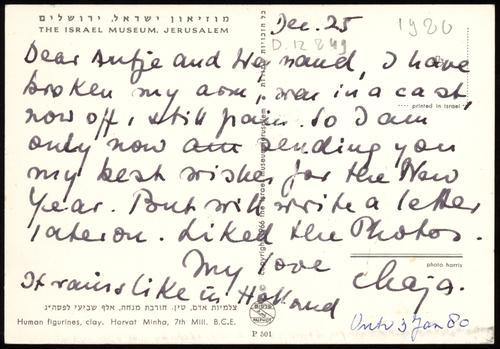 מוזיאון ישראל, ירושלים
THE ISRAEL MUSEUM, JERUSALEM
Dec. 25
1980
D.12849
Dear Antje and Wynand, I have
broken my arm, was in a cast,
now off, still pain. So I am
only now am sending you
my best wishes for the New
Year. But will write a letter
later on. Liked the Photos.
My love
Chaja.
It rains like in Holland
printed in Israel
כל הזכויות שמורות
copyright 1966 the israel museum jerusalem
photo harris
צלמיות אדם, טין. חורבת מנחה, אלף שביעי לפסה״נ
Human figurines, clay. Horvat Minha, 7th Mill. B.C.E.
PALPHOT
P 501
Ontv 3 Jan 80